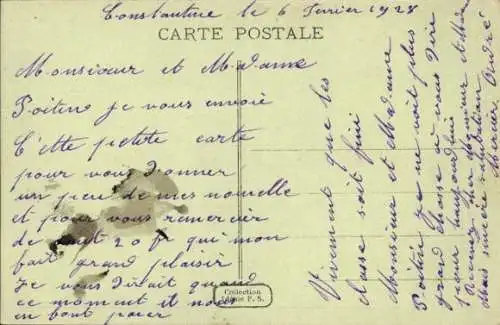 Constantine le 6 Fevrier 1928
CARTE POSTALE
Monsieur et Madame
Poitine je vous envoie
Cette petete carte
pour vous donner
un peu de mes nouvelle
et pour vous remercier
de 20 fr qui mon
fait grand plaisir
Je vous dirait quand
ce moment it nous
en bout
Vivement que les
classe soit fini
Monsieur et Madame
Poitine je ne voit plus
grand chose a vous dire
pour
Recevez Monsieur
Mais sincère
Mercier André
Collection
P. S.